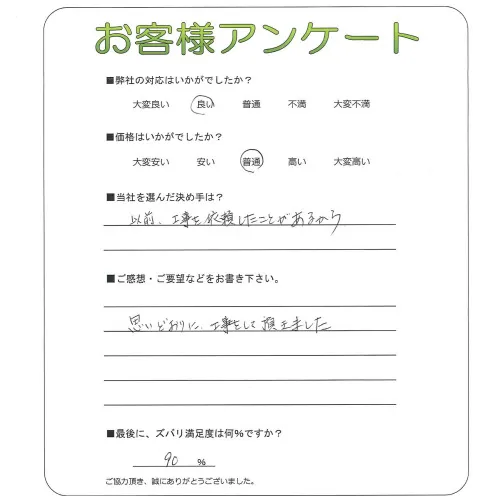 お客様アンケート
■弊社の対応はいかがでしたか？
大変良い 良い 普通 不満 大変不満
■価格はいかがでしたか？
大変安い 安い 普通 高い 大変高い
■当社を選んだ決め手は？
以前、工事を依頼したことがあるから
■ご感想・ご要望などをお書き下さい。
思いどおりに、工事をして頂きました
■最後に、ズバリ満足度は何%ですか？
90 %
ご協力頂き、誠にありがとうございました。